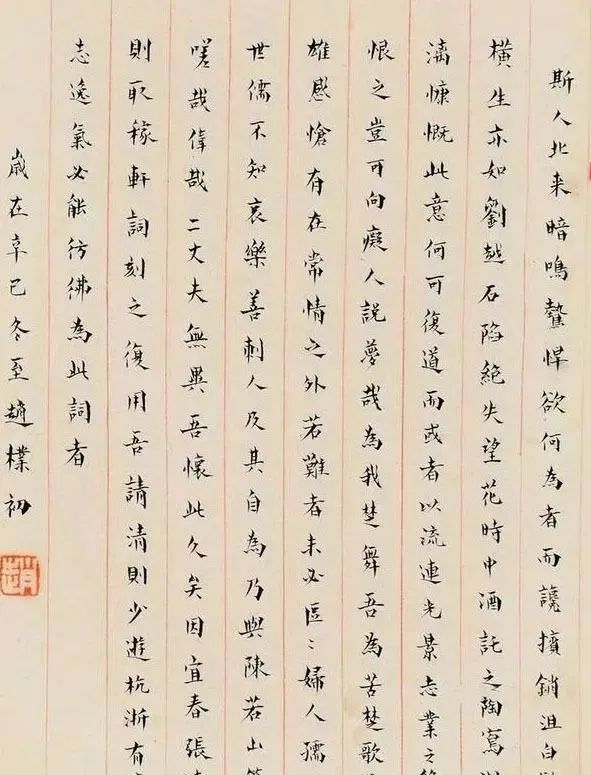 斯人北来暗鳴鷙悍欲何為者而讒擯銷沮白
橫生亦如劉越石陷絶失望花時中酒託之陶寫
漓慷慨此意何可復道而或者以流連光景志業之
恨之豈可向癡人説夢哉為我楚舞吾為苦楚歌
雄感愴有在常情之外若難者未必區〻婦人孺
世儒不知哀樂善刺人及其自為乃與陳若山
嗟哉偉哉二丈夫無異吾懷此久矣因宜春張
則取稼軒詞刻之復用吾請清則少遊杭浙有
志逸氣必能彷彿為此詞者
歲在辛巳冬至趙樸初